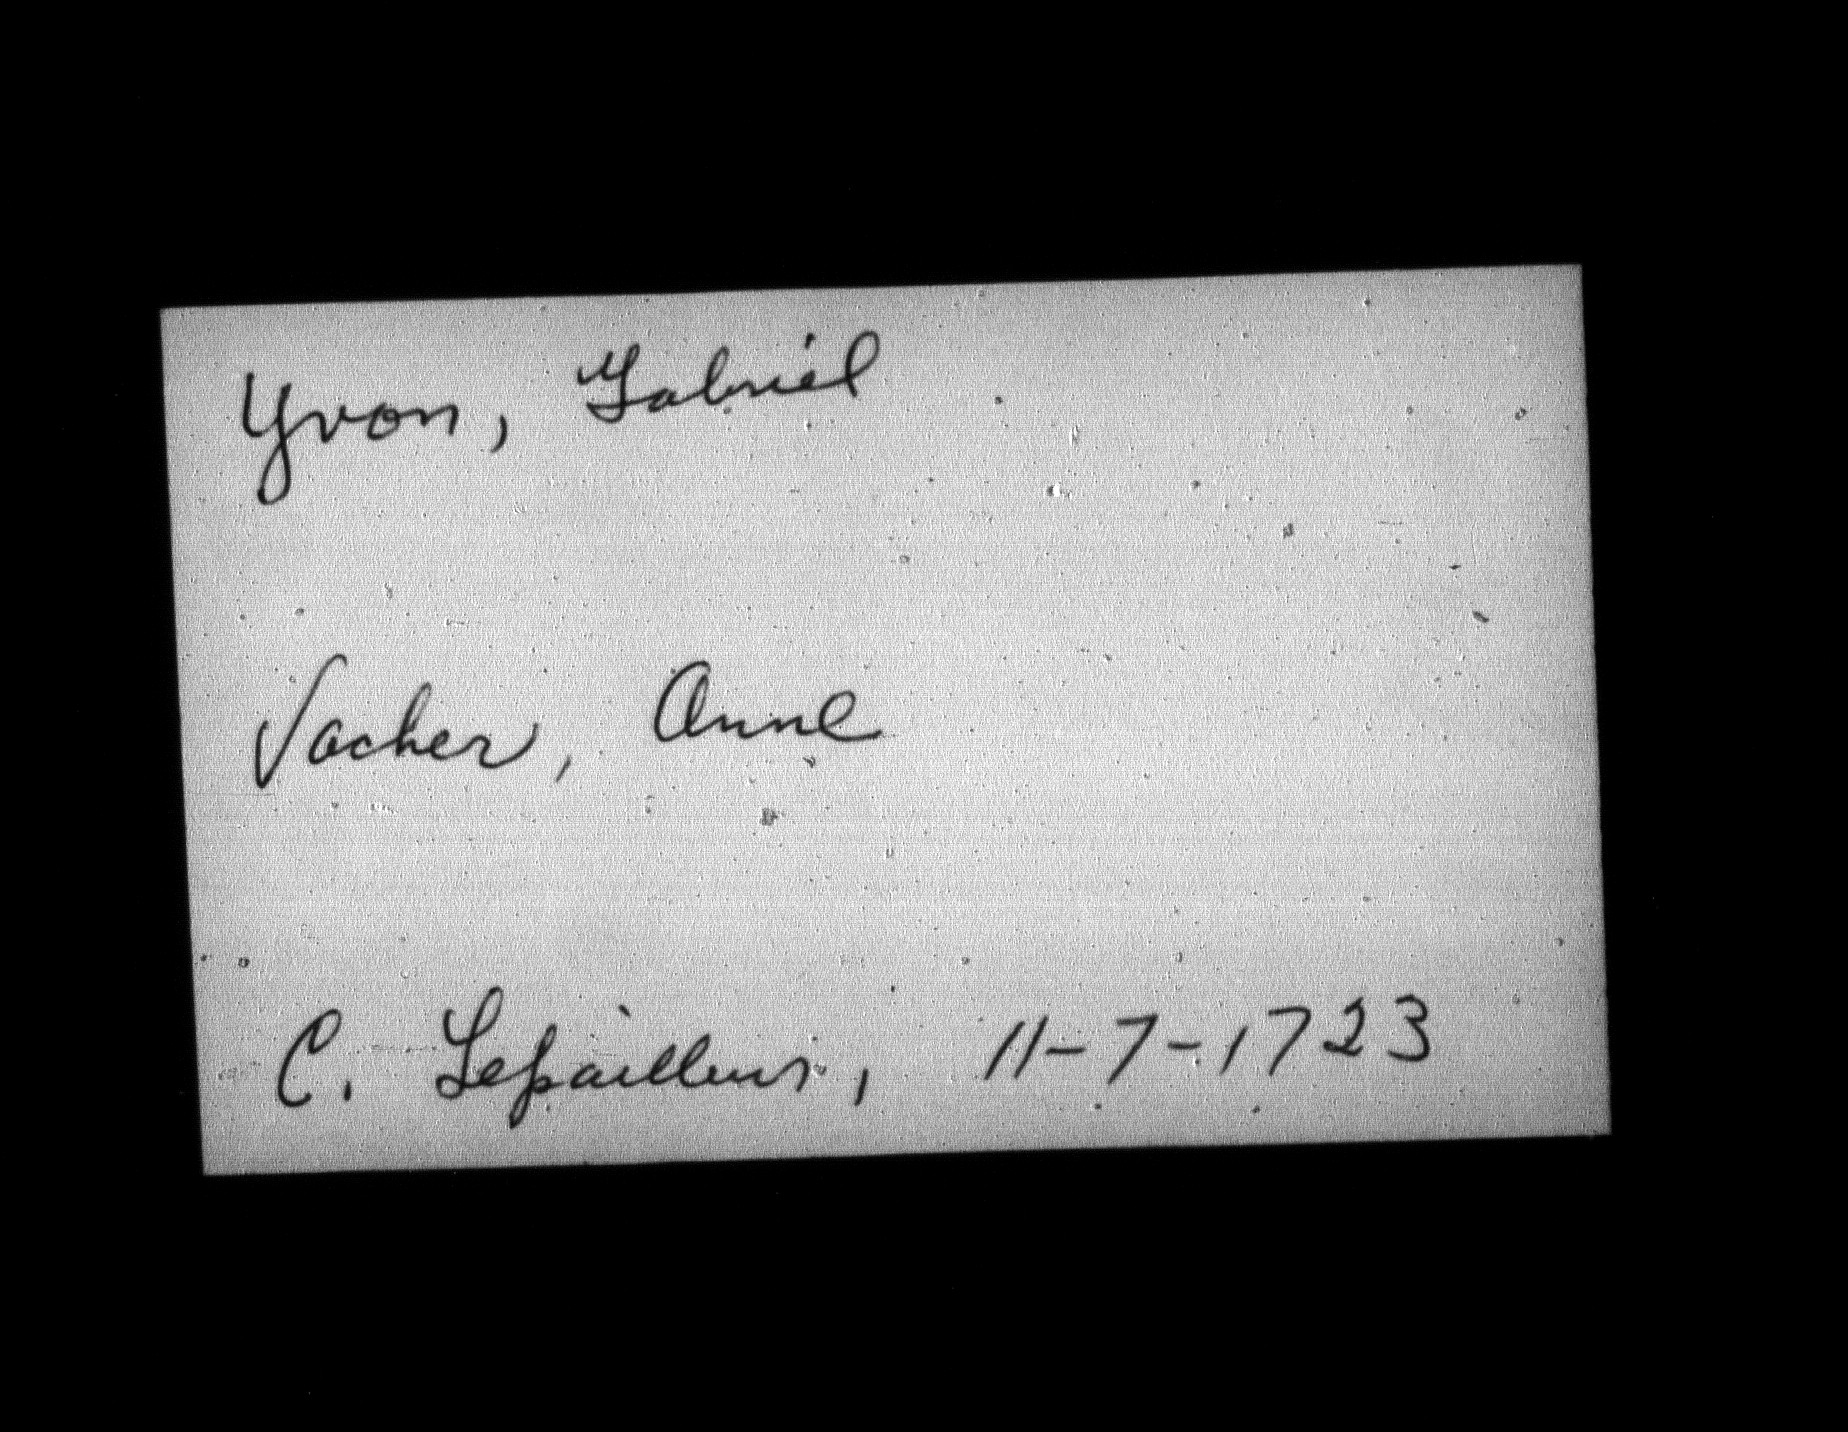 Yvon, Gabriel
Vacher, Anne
C. Lepailleur, 11-7-1723